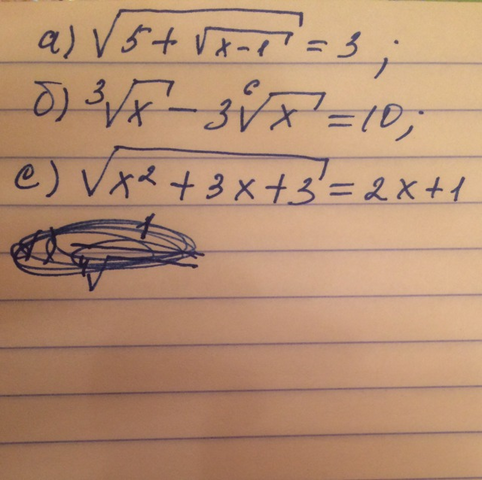 а) √(5 + √(x-1)) = 3;
б) ³√x - 3 ⁶√x = 10;
е) √(x² + 3x + 3) = 2x + 1